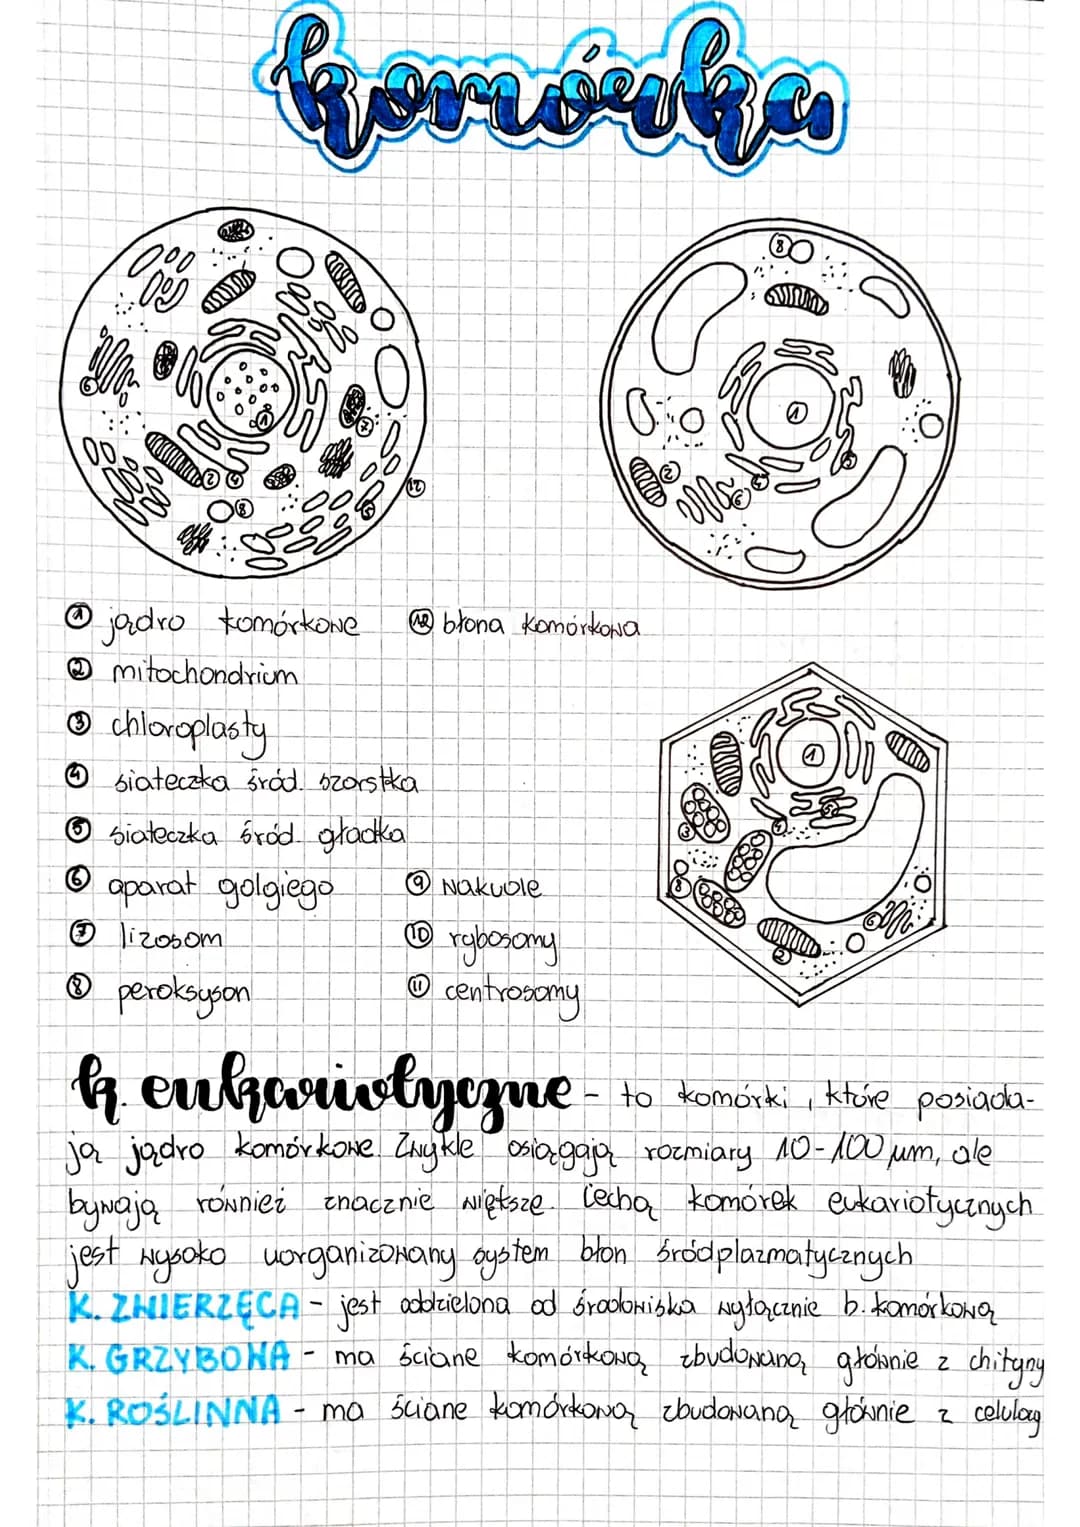 komórka
① jądro komórkowe ⑫ błona komórkowa
② mitochondrium
③ chloroplasty
④ siateczka śród. szorstka
⑤ siateczka śród. gładka
⑥ aparat golgiego ⑨ wakuole
⑦ lizosom ⑩ rybosomy
⑧ peroksyson ⑪ centrosomy
k. eukariotyczne - to komórki, które posiada-
ją jądro komórkowe. Zwykle osiągają rozmiary 10-100 μm, ale
bywają również znacznie większe. Cechą komórek eukariotycznych
jest wysoko uorganizowany system błon śródplazmatycznych
K. ZWIERZĘCA - jest oddzielona od środowiska wyłącznie b. komórkową
K. GRZYBOWA - ma ściane komórkową zbudowaną głównie z chityny
K. ROŚLINNA - ma ściane komórkową zbudowaną głównie z celulozy